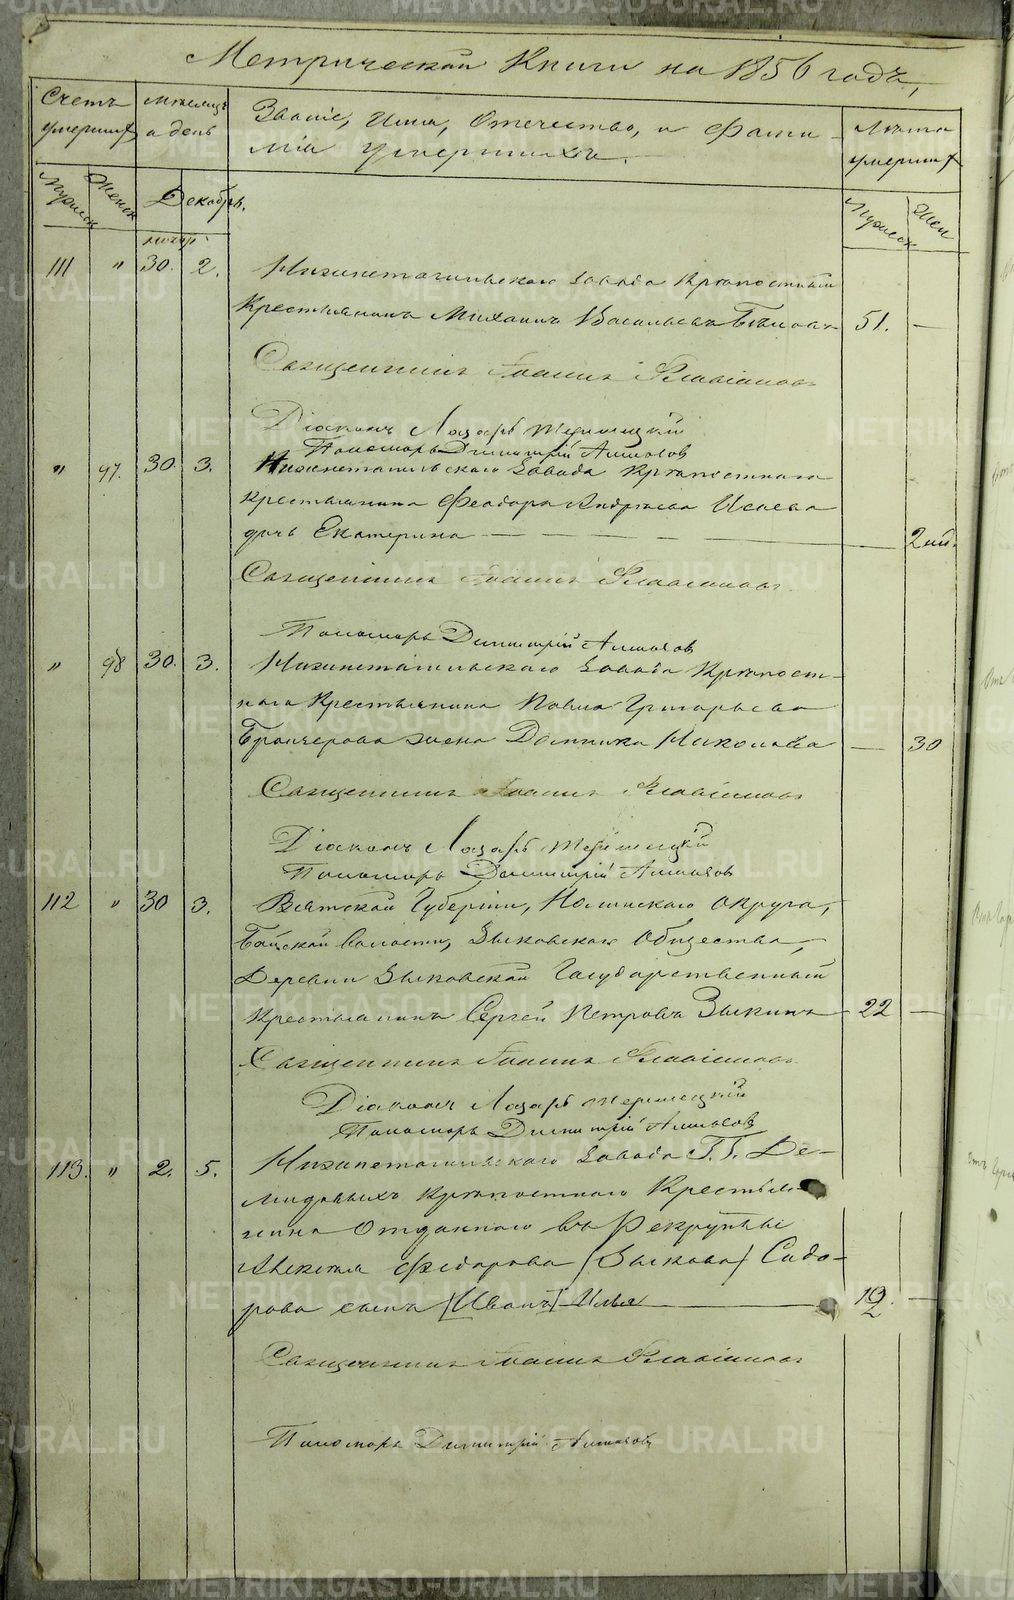 Метрической Книги на 1856 годъ,
Счетъ умершихъ
мѣсяцъ и день
Званіе, Имя, Отечество, и Фами-
лія умершихъ.
Лѣта умершихъ
Мужеск
Женск
Декабрь.
Мужеск
Жен
111 " 30. 2. Нижнетагильскаго завода крѣпостный
Крестьянинъ Михаилъ Васильевъ 51. —
Священникъ Іоаннъ Флавіановъ
Діаконъ Лазарь
Пономарь Димитрій
" 97. 30. 3. Нижнетагильскаго Завода крѣпостнаго
крестьянина Феодора Андреева Исаева
дочь Екатерина — 2 нед.
Священникъ Іоаннъ Флавіановъ
Пономарь Димитрій
" 98 30. 3. Нижнетагильскаго Завода Крѣпост-
наго Крестьянина Павла Григорьева
жена Домника Николаева — 30
Священникъ Іоаннъ Флавіановъ
Діаконъ Лазарь
Пономарь Димитрій
112 " 30 3. Вятской Губерніи, Нолинскаго округа,
волости, Зыковскаго Общества,
Деревни Зыковской Государственный
Крестьянинъ Сергей Петровъ Зыкинъ 22 —
Священникъ Іоаннъ Флавіановъ
Діаконъ Лазарь
Пономарь Димитрій
113. " 2. 5. Нижнетагильскаго Завода Г.Г. Де-
мидовыхъ крѣпостнаго Крестья-
нина Отданнаго въ Рекруты
Алексея Федорова (Зыкова) Сидо-
рова сынъ [Иванъ] Илья —
Священникъ Іоаннъ Флавіановъ
Пономарь Димитрій
METRIKI.GASO-URAL.RU